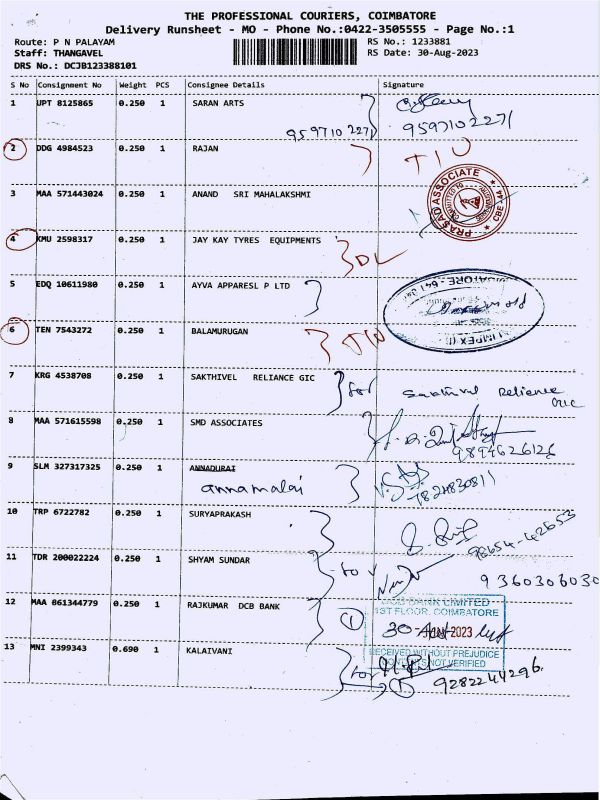 THE PROFESSIONAL COURIERS, COIMBATORE
Delivery Runsheet - MO - Phone No.:0422-3505555 - Page No.:1
Route: P N PALAYAM RS No.: 1233881
Staff: THANGAVEL RS Date: 30-Aug-2023
DRS No.: DCJB123388101
S No Consignment No Weight PCS Consignee Details Signature
1 UPT 8125865 0.250 1 SARAN ARTS
9597102271 9597102271
2 DDG 4984523 0.250 1 RAJAN
PRASAD ASSOCIATE CBE-44
3 MAA 571443024 0.250 1 ANAND SRI MAHALAKSHMI
4 KMU 2598317 0.250 1 JAY KAY TYRES EQUIPMENTS
DL
5 EDQ 10611980 0.250 1 AYVA APPARESL P LTD
6 TEN 7543272 0.250 1 BALAMURUGAN
7 KRG 4538708 0.250 1 SAKTHIVEL RELIANCE GIC
for Sakthivel Reliance GIC
8 MAA 571615598 0.250 1 SMD ASSOCIATES
9894626126
9 SLM 327317325 0.250 1 ANNADURAI
annamalai
10 TRP 6722782 0.250 1 SURYAPRAKASH
98654-42653
11 TDR 200022224 0.250 1 SHYAM SUNDAR
for
9360306030
12 MAA 861344779 0.250 1 RAJKUMAR DCB BANK
DCB BANK LIMITED
1ST FLOOR, COIMBATORE
30 2023
RECEIVED WITHOUT PREJUDICE
CONTENTS NOT VERIFIED
13 MNI 2399343 0.690 1 KALAIVANI
for
9282244296